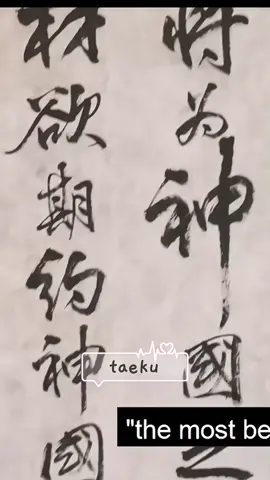 為神國之
材欲期約神國
taeku
"the most be